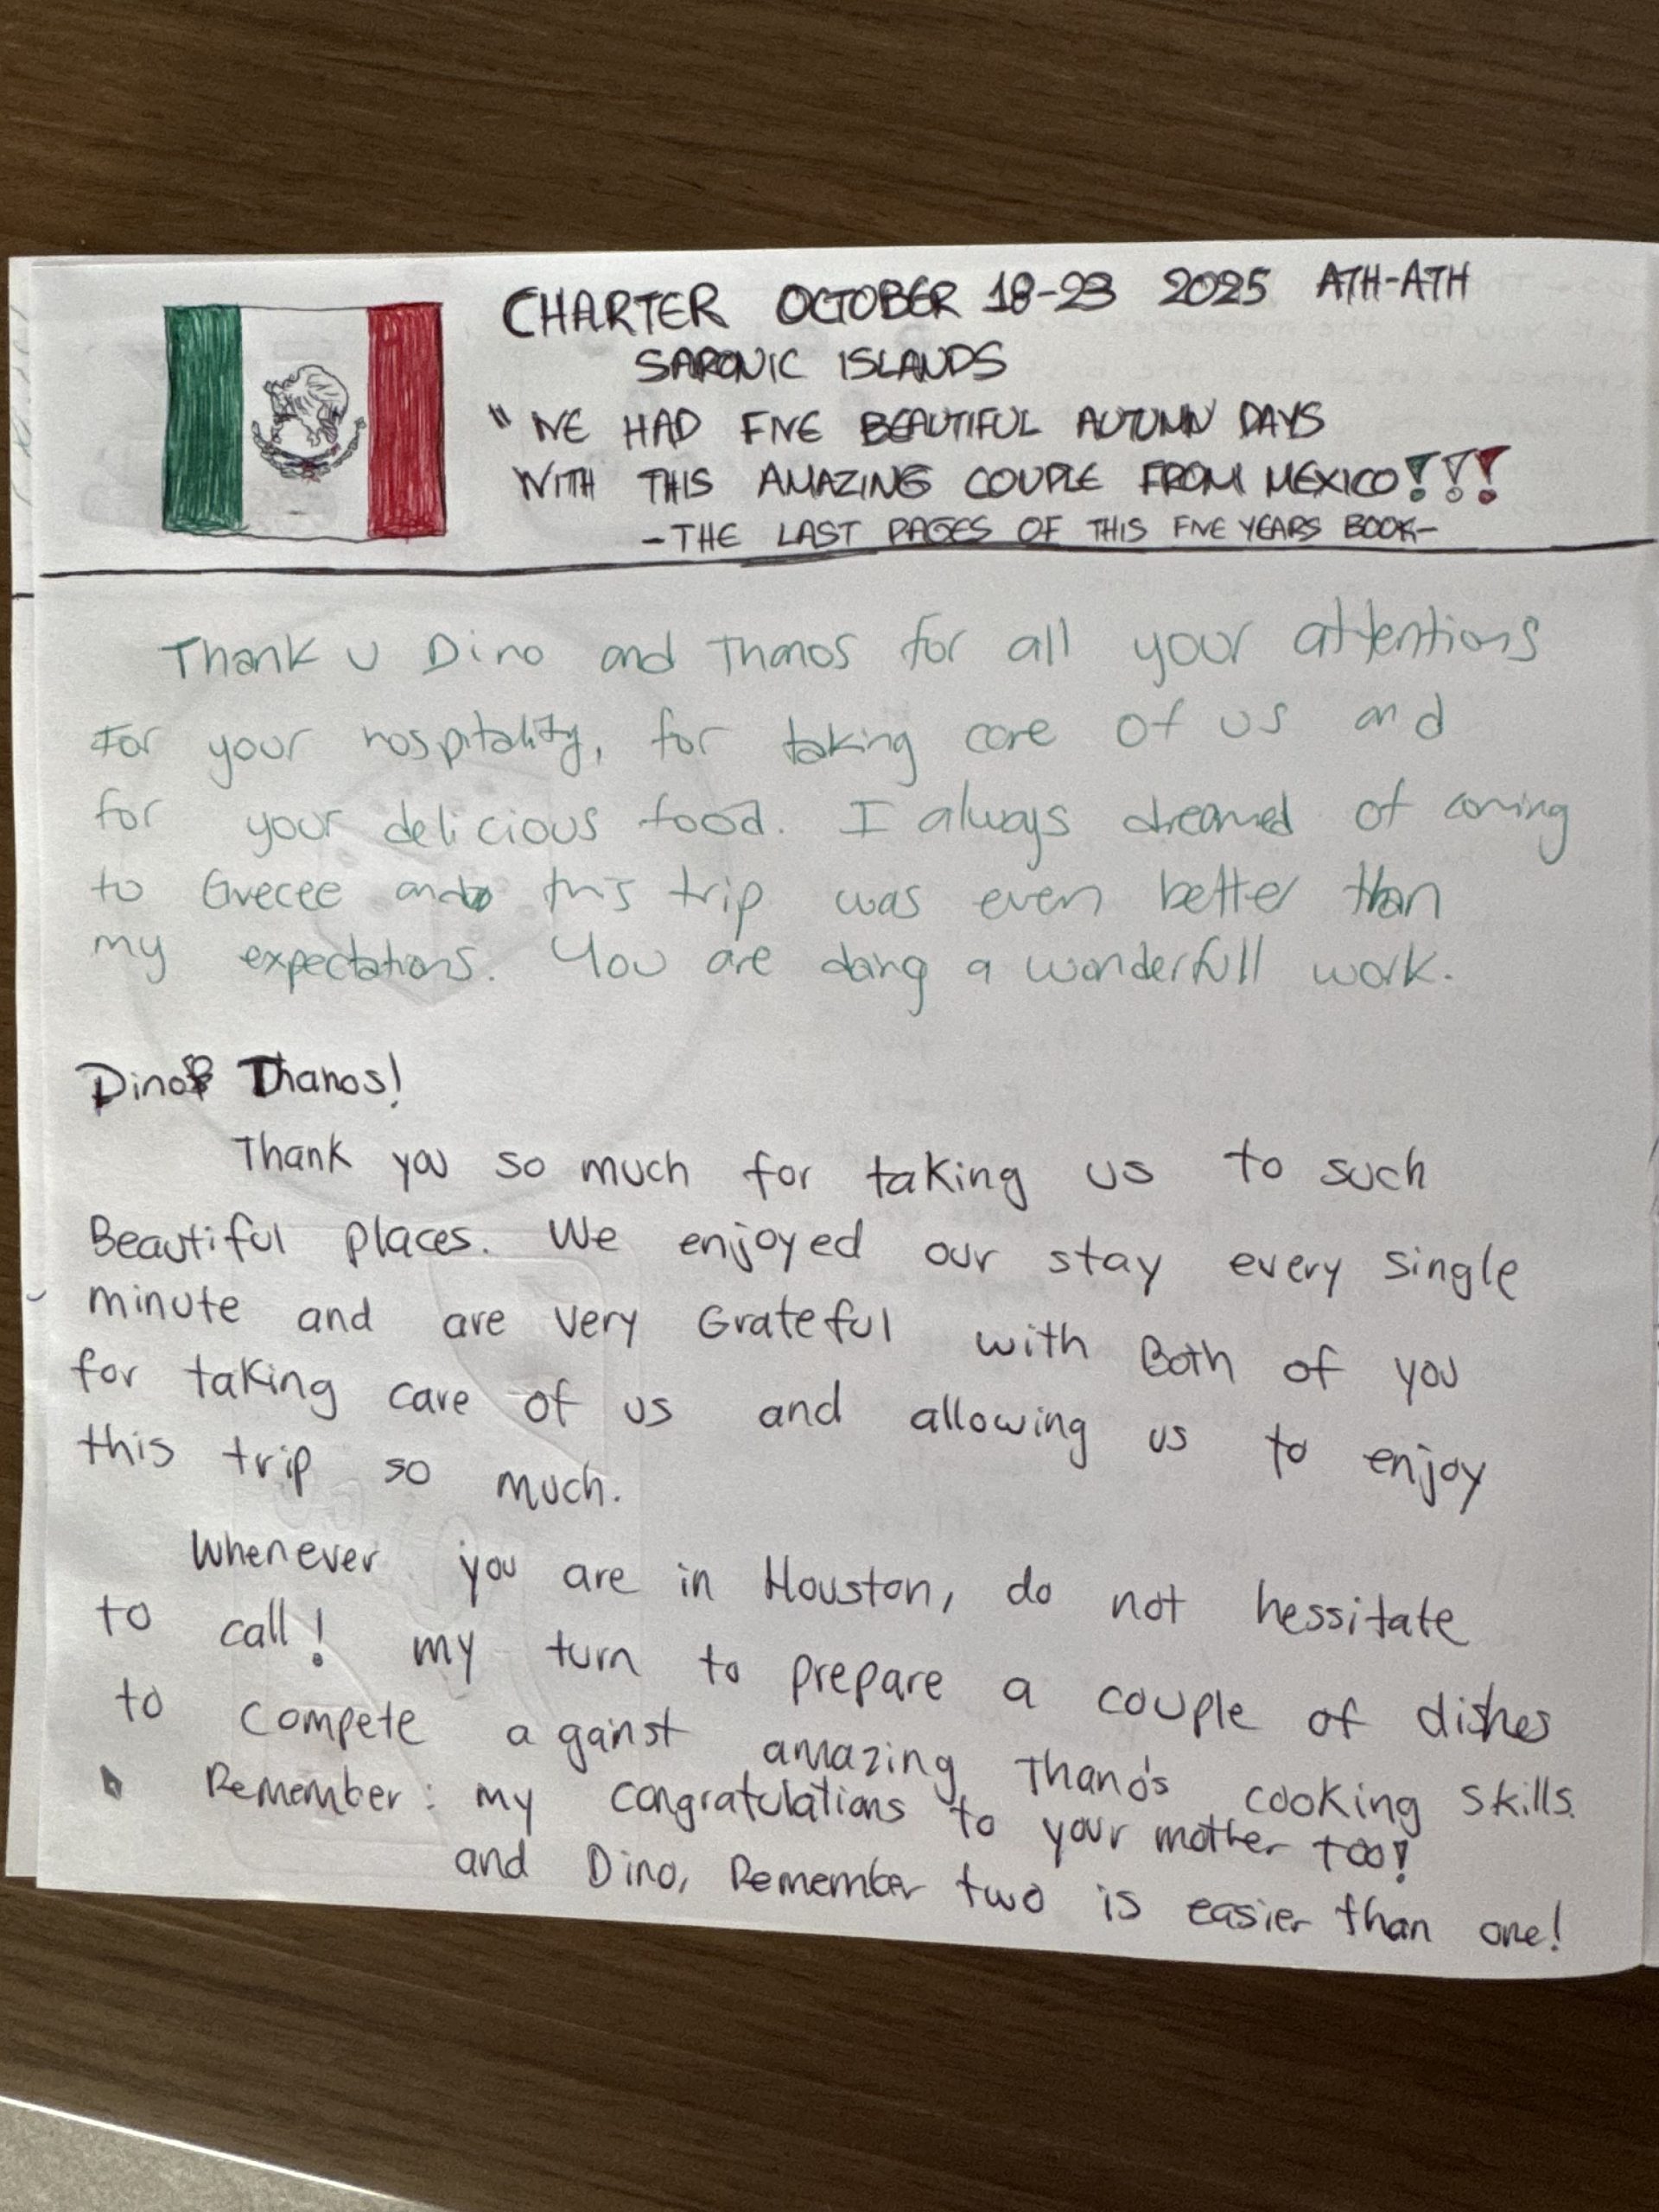 CHARTER OCTOBER 18-23 2025 ATH-ATH
SARONIC ISLANDS
" WE HAD FIVE BEAUTIFUL AUTUMN DAYS
WITH THIS AMAZING COUPLE FROM MEXICO!!!
- THE LAST PAGES OF THIS FIVE YEARS BOOK -
Thank U Dino and Thanos for all your attentions
For your hospitality, for taking care of us and
for your delicious food. I always dreamed of coming
to Grecee and this trip was even better than
my expectations. You are doing a wonderfull work.
Dino & Thanos!
Thank you so much for taking us to such
Beautiful places. We enjoyed our stay every single
minute and are very Grateful with Both of you
for taking care of us and allowing us to enjoy
this trip so much.
Whenever you are in Houston, do not hessitate
to call! my turn to prepare a couple of dishes
to compete against amazing Thano's cooking skills.
Remember: my congratulations to your mother too!
and Dino, Remember two is easier than one!